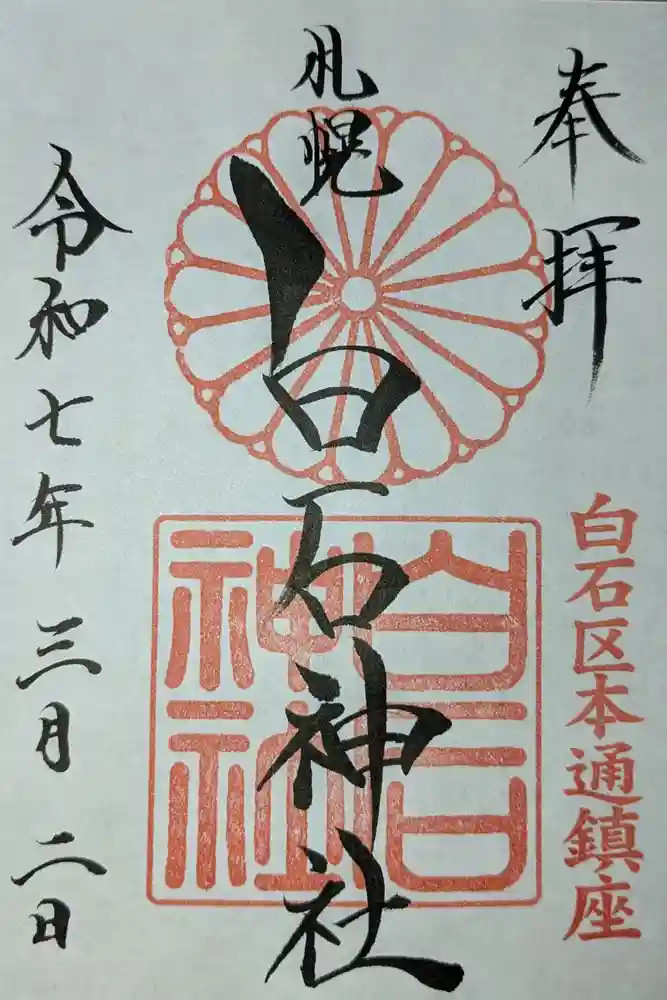 奉拝
白石区本通鎮座
札幌
白石神社
白石神社
令和七年三月二日